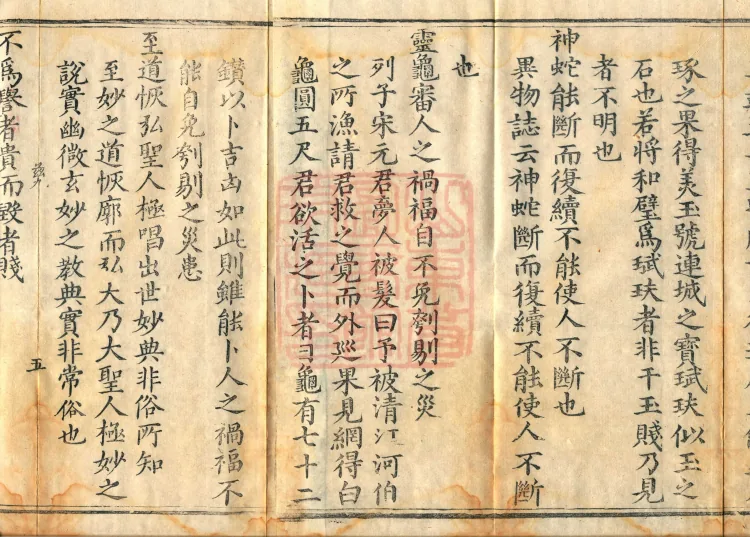 琢之果得美玉號連城之寶珷玞似玉之
石也若將和璧爲珷玞者非干玉賤乃見
者不明也
神蛇能斷而復續不能使人不斷也
異物誌云神蛇斷而復續不能使人不斷
靈龜審人之禍福自不免刳剔之災
也
列子宋元君夢人被髮曰予被清江河伯
之所漁請君救之覺而外廵果見網得白
龜圓五尺君欲活之卜者曰龜有七十二
鑚以卜吉凶如此則雖能卜人之禍福不
能自免刳剔之災患
至道恢弘聖人極唱出世妙典非俗所知
至妙之道恢廓而弘大乃大聖人極妙之
說實幽微玄妙之教典實非常俗也
五
不爲譽者貴而毀者賤